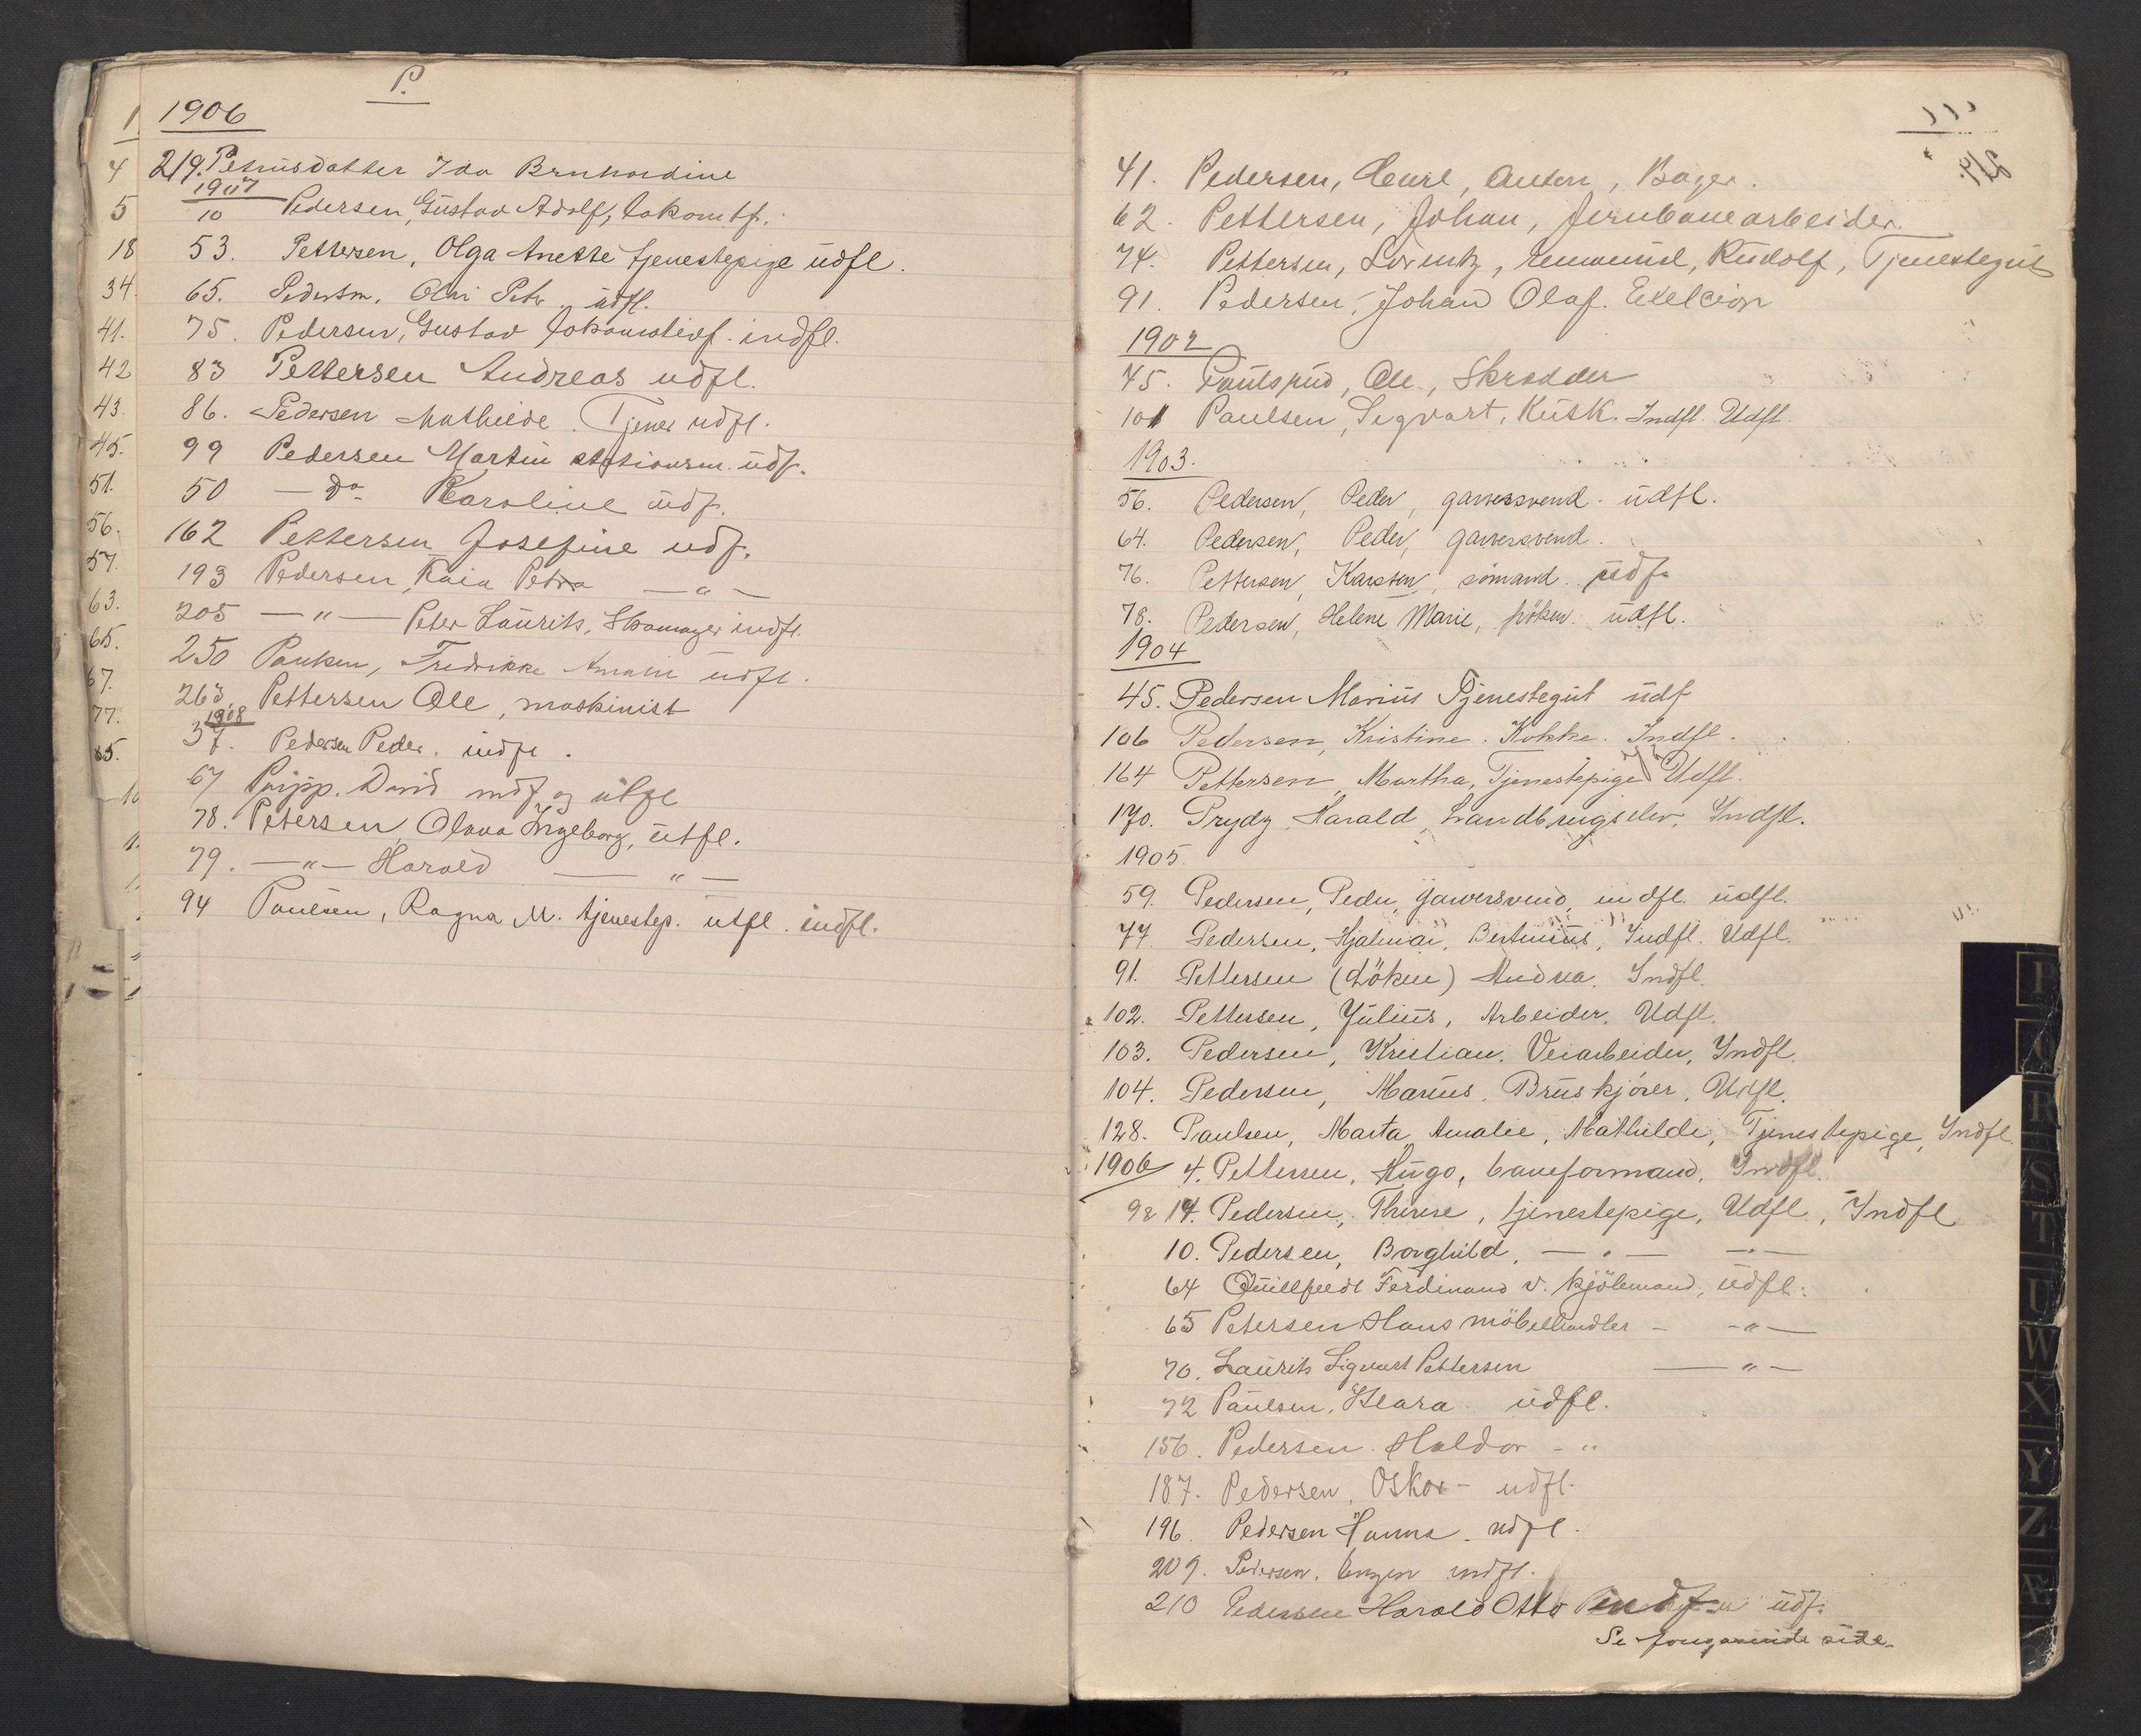 P.
1906
219. Petrusdatter Ida Brnhardine
1907
10 Pedersen, Gustav Adolf, lokomtf.
53. Pettersen, Olga Anette tjenestepige udfl.
65. Pedersen. Peter udfl.
75. Pedersen, Gustav lokomotivf. indfl.
83 Pettersen Andreas udfl.
86. Pedersen Mathilde. Tjener udfl.
99 Pedersen Martin stationsm. udf.
50 — do Karoline udf.
162 Pettersen Josefine udf.
193 Pedersen, Kaia Petra — " —
205 — " — Peter Laurits, Skomager indfl.
250 Paulsen, Fredrikke Amalie udfl.
263, Pettersen Ole, maskinist
1908
37. Pedersen Peder. indfl.
67 Pripp. David indf og utfl
78. Petersen, Olava Ingeborg, utfl.
79. — " — Harald — " —
94 Paulsen, Ragna M. tjenestep. utfl. indfl.
4
5
18
34
41.
42
43.
45.
51.
56.
57.
63.
65.
67.
77.
85.
41. Pedersen, Carl, Anton, Bager.
62. Pettersen, Johan, Jernbanearbeider.
74. Pettersen, Lorentz, Emmanuel, Rudolf, Tjenestegut
91. Pedersen, Johan Olaf.
1902
45. Paulsrud, Ole, Skrædder
101 Paulsen, Sigvart, Kusk. Indfl. Udfl.
1903.
56. Pedersen, Peder, garversvend. udfl.
64. Pedersen, Peder, garversvend.
76. Pettersen, Karsten, sömand. udf.
78. Pedersen, Helene Marie, fröken. udfl.
1904
45. Pedersen Marius Tjenestegut udf
106 Pedersen, Kristine. Kokke. Indfl.
164 Pettersen, Martha, Tjenestepige Udfl.
170. Prydz, Harald, Landbrugselev. Indfl.
1905
59. Pedersen, Peder, garversvend, indfl. udfl.
77. Pedersen, Hjalmar, Bertinius, Indfl. Udfl.
91. Pettersen (Löken) Andrea. Indfl.
102. Pettersen, Julius, Arbeider. Udfl.
103. Pedersen, Kristian. Veiarbeider, Indfl.
104. Pedersen, Marius. Bruskjörer. Udfl.
128. Paulsen, Marta Amalie, Mathilde, Tjenestepige, Indfl.
1906 4. Pettersen, Hugo, baneformand, Indfl.
98 14. Pedersen, Therese, tjenestepige, Udfl, Indfl
10. Pedersen, Borghild, — " — — " —
64 Quillfeldt Ferdinand v. kjöbmand, udfl.
65 Petersen Hans möbelhandler - — " —
70. Laurits Sigvart Pettersen — " —
72 Paulsen, Klara. udfl.
156. Pedersen Haldor - "
187. Pedersen, Oskar - udfl.
196. Pedersen Hanna - udfl.
209. Pedersen. indfl.
210 Pedersen Harald Otto udf.
Se foregaaende side.
P
Q
R
S
T
U
W
X
Y
Z
Æ